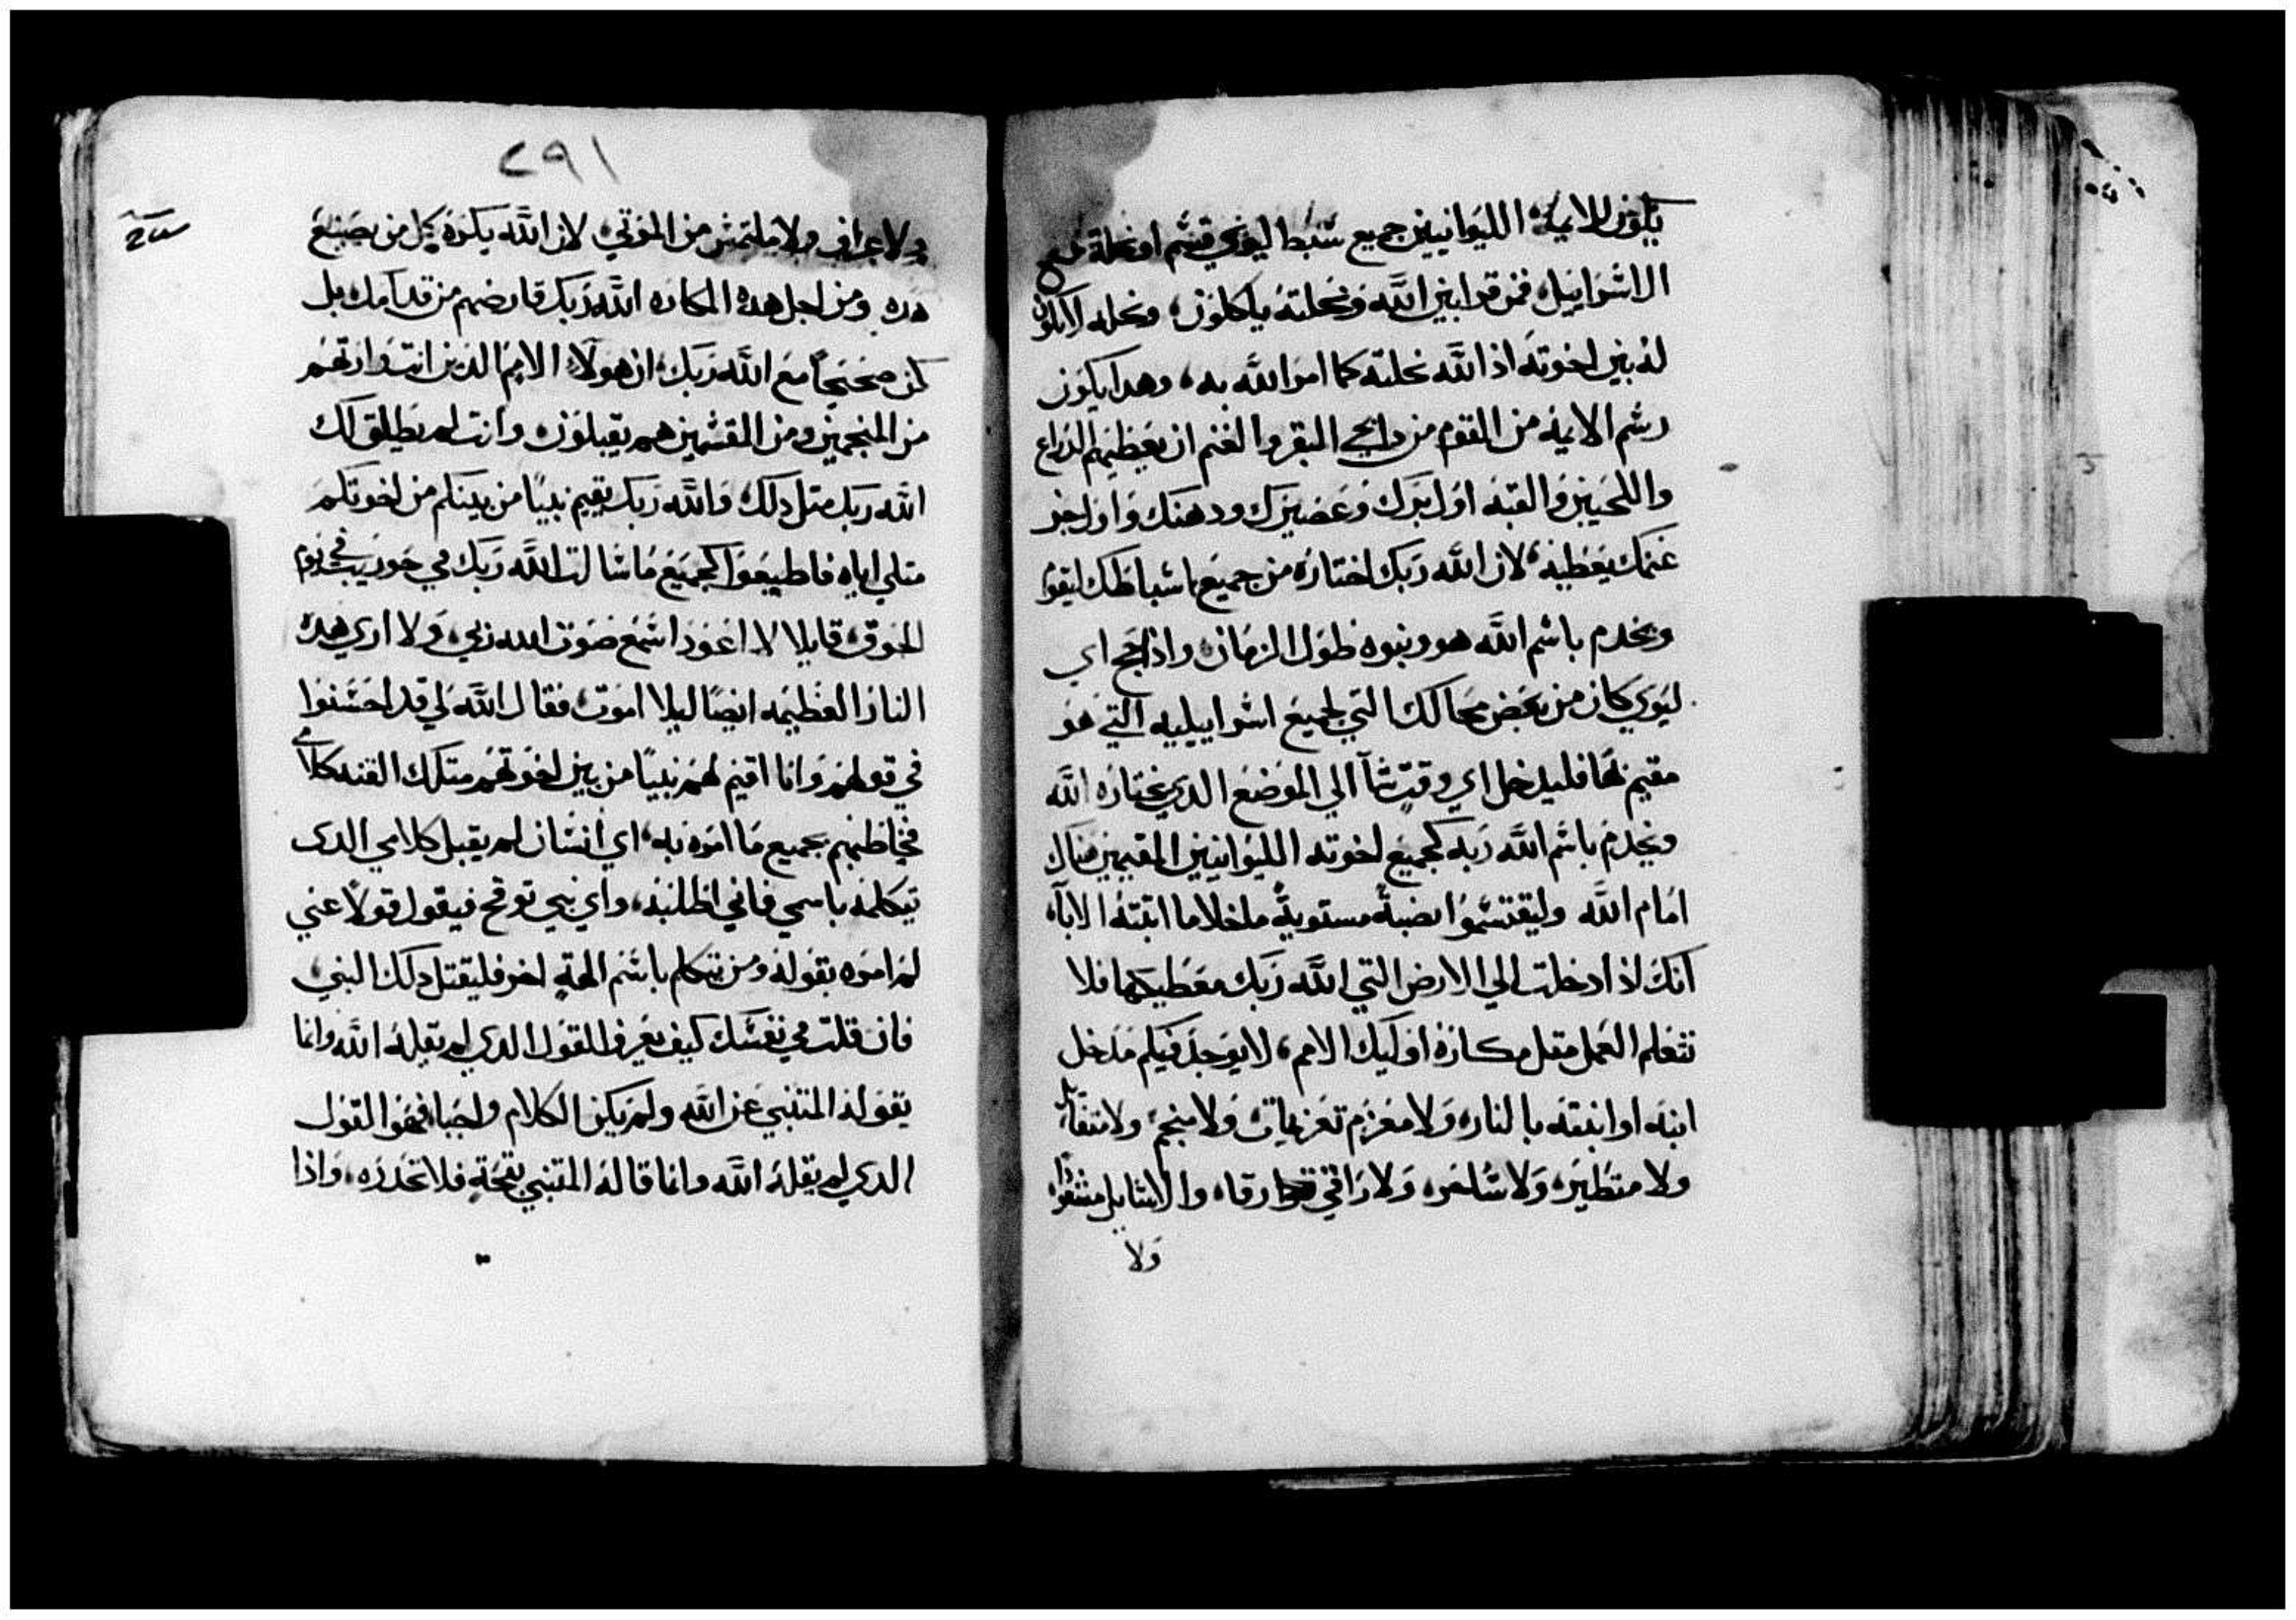 يكون للايمة الليوانيين جميع سبط ليوي قسم او نحلة مع
ال اسراييل، فمن قرابين الله ونحلته ياكلون، ونحله لا تكون
له بين اخوته اذ الله نحلته كما امر الله به، وهدا يكون
رسم الايمة من القوم من دابحي البقر والغنم ان يعطيهم الدراع
واللحيين والقبه اول برك وعصيرك ودهنك واول جز
غنمك يعطيه، لان الله ربك اختاره من جميع اسباطك ليقوم
ويخدم باسم الله هو وبنوه طول الزمان، واذا جح اي
ليوي كان من بعض محالك التي لجميع اسراييليه التي هو
مقيم بها فليدخل اي وقت شا الي الموضع الدي يختاره الله
ويخدم باسم الله ربه كجميع اخوته الليوانيين المقيمين هناك
امام الله وليقتسموا نصبة مستوية ما خلا ما اتبته الابآ،
انك اذا دخلت الي الارض التي الله ربك معطيكها فلا
تتعلم العمل متل مكاره اوليك الامم، لا يوجد فيكم مدخل
ابنه او ابنته بالنار، ولا معزم تعزيمات، ولا منجم، ولا متفايل
ولا متطير، ولا ساحر، ولا راقي رقا، ولا سايل مشعوذا
ولا
٢٩١
ولا عراف ولا ملتمس من الموتي، لان الله يكره كل من يصنع
هده ومن اجل هده المكاره الله ربك قارضهم من قدامك بل
كن صحيحاً مع الله ربك، ان هولآ الامم الدين انت وارتهم
من المنجمين ومن المقسمين هم يقبلون، وانت لم يطلق لك
الله ربك متل دلك، والله ربك يقيم نبياً من بينكم من اخوتكم
متلي اياه فاطيعوا كجميع ما سالت الله ربك في حوريب في يوم
الجوق، قايلا لا اعود اسمع صوت الله ربي، ولا اري هده
النار العظيمه ايضاً ليلا اموت، فقال الله لي قد احسنوا
في قولهم وانا اقيم لهم نبياً من بين اخوتهم متلك القنه كلامي
فيخاطبهم بجميع ما امره به، اي انسان لم يقبل كلامي الدي
يتكلمه باسمي فاني اطالبه، واي نبي توقح فيقول قولاً عني
لم امره بقوله ومن تتكلم باسم الهةٍ اخر فليقتل دلك النبي،
فان قلت في نفسك كيف يعرف القول الدي لم يقله الله وانما
يقوله المتنبي عن الله ولم يكن الكلام واجبا، فهو القول
الدي لم يقله الله وانما قاله المتنبي بقحةٍ فلا تحدره، واذا